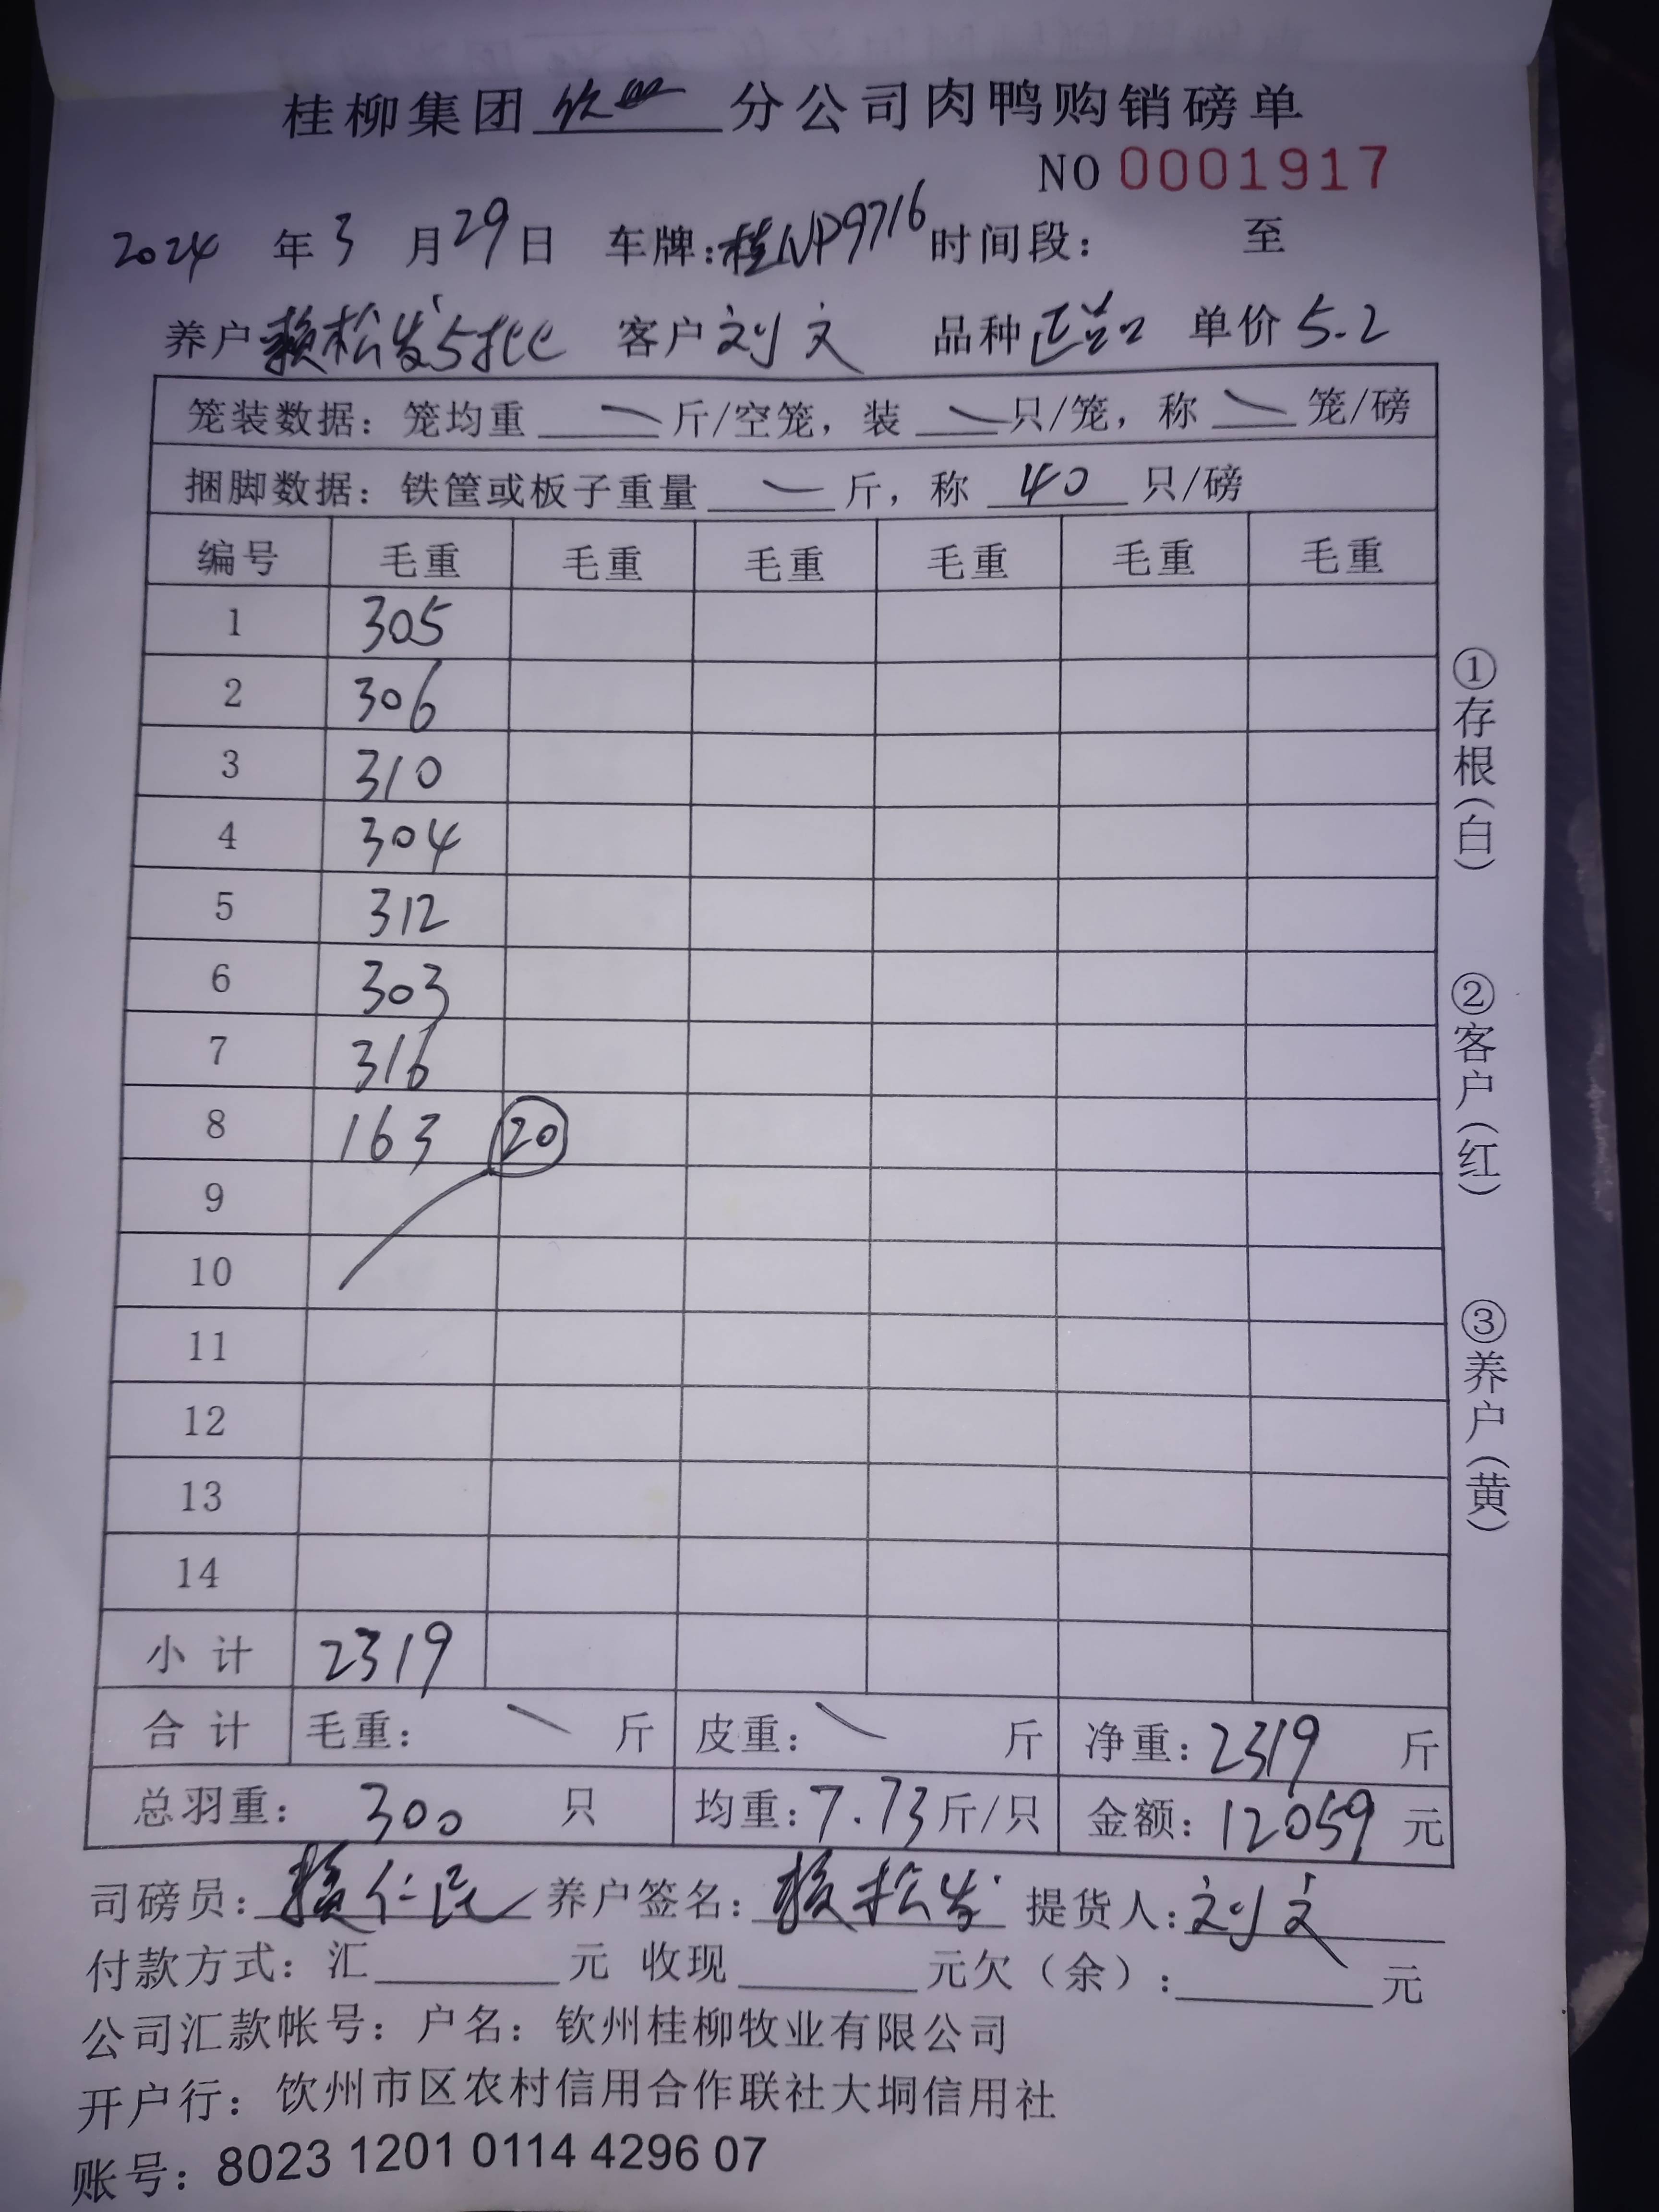 桂柳集团钦州分公司肉鸭购销磅单
NO 0001917
2024 年 3 月 29 日 车牌：桂NP9716 时间段： 至
养户 赖松发5批 客户 刘文 品种 单价 5.2
笼装数据：笼均重 — 斤/空笼，装 — 只/笼，称 — 笼/磅
捆脚数据：铁筐或板子重量 — 斤，称 40 只/磅
编号 毛重 毛重 毛重 毛重 毛重 毛重
1 305
2 306
3 310
4 304
5 312
6 303
7 316
8 163 20
9
10
11
12
13
14
小计 2319
合计 毛重： — 斤 皮重： — 斤 净重：2319 斤
总羽重： 300 只 均重：7.73 斤/只 金额：12059 元
司磅员：赖仁民 养户签名：赖松发 提货人：刘文
付款方式：汇 元 收现 元欠（余）： 元
公司汇款帐号：户名：钦州桂柳牧业有限公司
开户行：钦州市区农村信用合作联社大垌信用社
账号：8023 1201 0114 4296 07
①存根（白）
②客户（红）
③养户（黄）